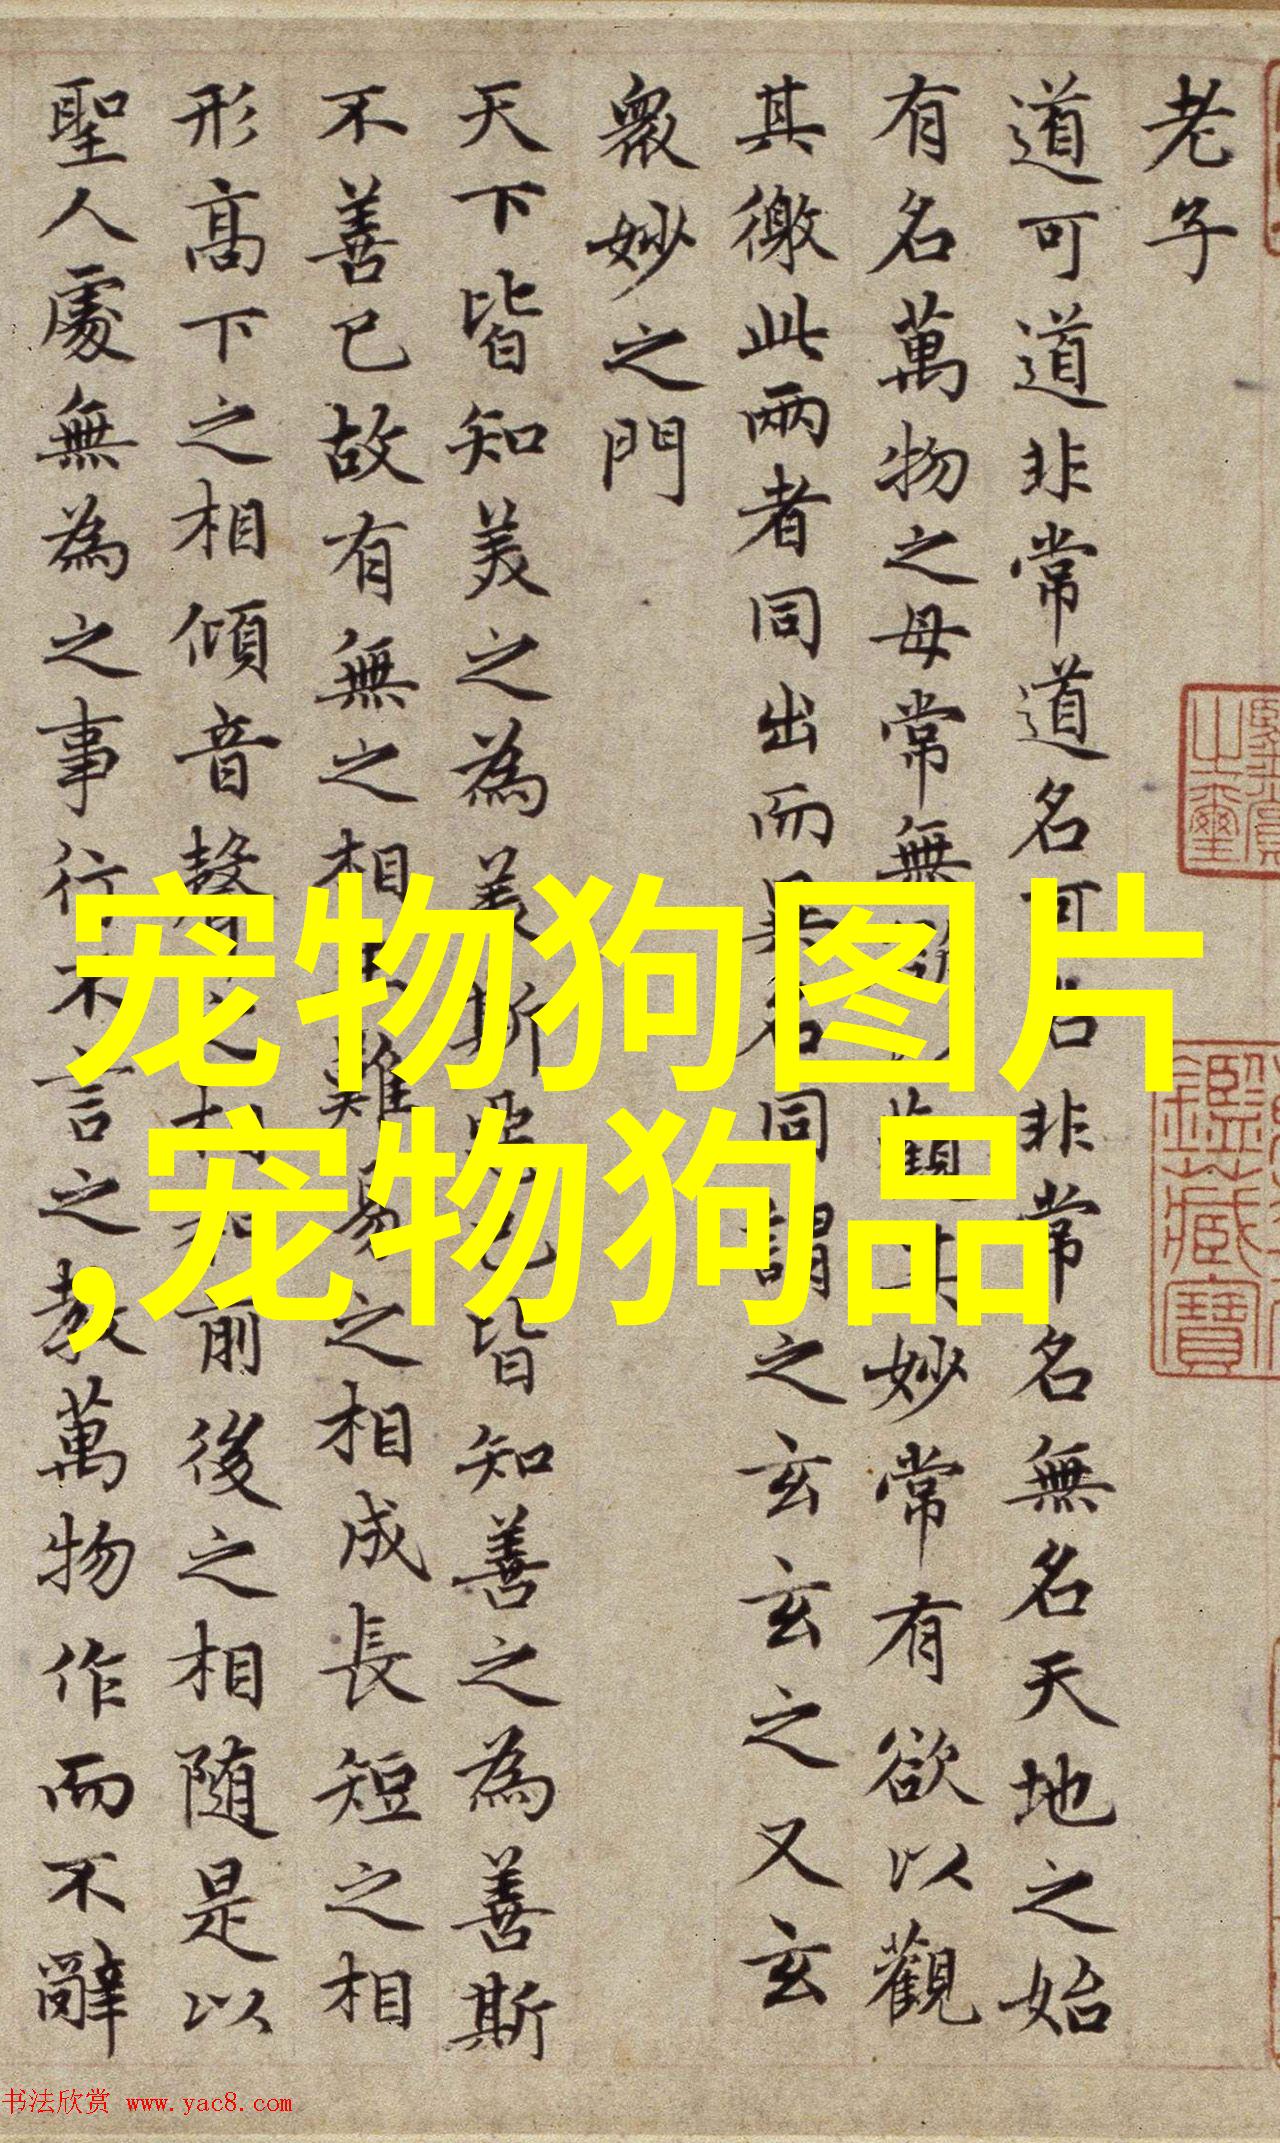 老子
道可道非常道名可名非常名無名天地之始
有名萬物之母常無欲以觀其妙常有欲以觀
其徼此兩者同出而異名同謂之玄玄之又玄
衆妙之門
天下皆知美之為美斯惡已皆知善之為善斯
不善已故有無之相生難易之相成長短之相
形高下之相傾音聲之相和前後之相随是以
聖人處無為之事行不言之教萬物作而不辭
宠物狗图片
,宠物狗品
鑑藏寶
书法欣赏 www.yac8.com